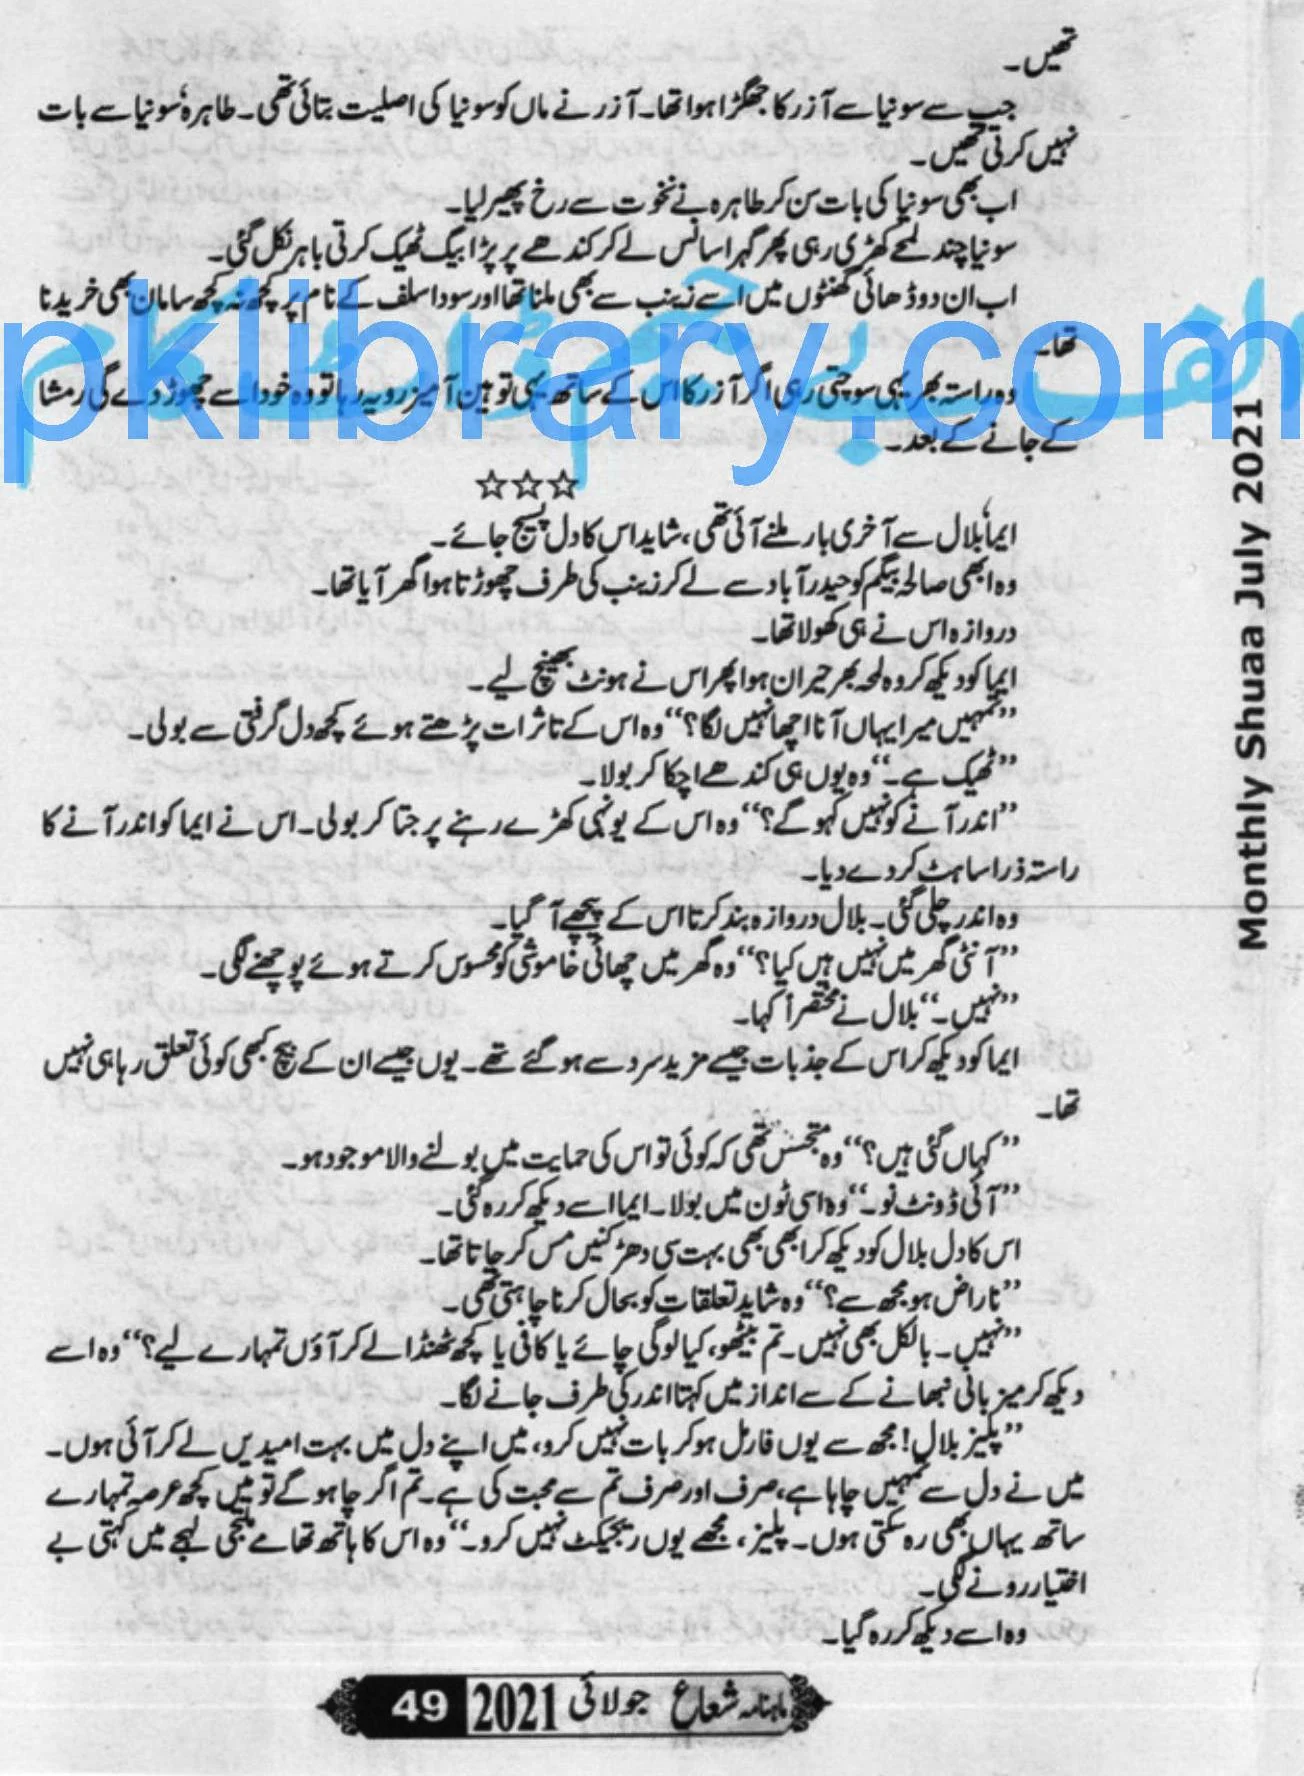 تھیں۔
جب سے سونیا سے آزر کا جھگڑا ہوا تھا۔ آزر نے ماں کو سونیا کی اصلیت بتائی تھی۔ طاہرہ سونیا سے بات
نہیں کرتی تھیں۔
اب بھی سونیا کی بات سن کر طاہرہ نے نخوت سے رخ پھیر لیا۔
سونیا چند لمحے کھڑی رہی پھر گہرا سانس لے کر کندھے پر پڑا بیگ ٹھیک کرتی باہر نکل گئی۔
اب ان دو ڈھائی گھنٹوں میں اسے زینب سے بھی ملنا تھا اور سودا سلف کے نام پر کچھ نہ کچھ سامان بھی خریدنا
تھا۔
pklibrary.com
وہ راستہ بھر یہی سوچتی رہی اگر آزر کا اس کے ساتھ یہی توہین آمیز رویہ رہا تو وہ خود اسے چھوڑ دے گی رمشا
کے جانے کے بعد۔
☆☆☆
ایما بلال سے آخری بار ملنے آئی تھی، شاید اس کا دل پسیج جائے۔
وہ ابھی صالحہ بیگم کو حیدرآباد سے لے کر زینب کی طرف چھوڑتا ہوا گھر آیا تھا۔
دروازہ اس نے ہی کھولا تھا۔
ایما کو دیکھ کر وہ لمحہ بھر حیران ہوا پھر اس نے ہونٹ بھینچ لیے۔
”تمہیں میرا یہاں آنا اچھا نہیں لگا؟“ وہ اس کے تاثرات پڑھتے ہوئے کچھ دل گرفتی سے بولی۔
”ٹھیک ہے۔“ وہ یوں ہی کندھے اچکا کر بولا۔
”اندر آنے کو نہیں کہو گے؟“ وہ اس کے یونہی کھڑے رہنے پر جتا کر بولی۔ اس نے ایما کو اندر آنے کا
راستہ ذرا سا ہٹ کر دے دیا۔
وہ اندر چلی گئی۔ بلال دروازہ بند کرتا اس کے پیچھے آ گیا۔
”آنٹی گھر میں نہیں ہیں کیا؟“ وہ گھر میں چھائی خاموشی کو محسوس کرتے ہوئے پوچھنے لگی۔
”نہیں۔“ بلال نے مختصراً کہا۔
ایما کو دیکھ کر اس کے جذبات جیسے مزید سرد سے ہو گئے تھے۔ یوں جیسے ان کے بیچ کبھی کوئی تعلق رہا ہی نہیں
تھا۔
”کہاں گئی ہیں؟“ وہ متجسس تھی کہ کوئی تو اس کی حمایت میں بولنے والا موجود ہو۔
”آئی ڈونٹ نو۔“ وہ اسی ٹون میں بولا۔ ایما اسے دیکھ کر رہ گئی۔
اس کا دل بلال کو دیکھ کر ابھی بھی بہت سی دھڑکنیں مس کر جاتا تھا۔
”ناراض ہو مجھ سے؟“ وہ شاید تعلقات کو بحال کرنا چاہتی تھی۔
”نہیں۔ بالکل بھی نہیں۔ تم بیٹھو، کیا لو گی چائے یا کافی یا کچھ ٹھنڈا لے کر آؤں تمہارے لیے؟“ وہ اسے
دیکھ کر میزبانی نبھانے کے سے انداز میں کہتا اندر کی طرف جانے لگا۔
”پلیز بلال! مجھ سے یوں فارمل ہو کر بات نہیں کرو، میں اپنے دل میں بہت امیدیں لے کر آئی ہوں۔
میں نے دل سے تمہیں چاہا ہے، صرف اور صرف تم سے محبت کی ہے۔ تم اگر چاہو گے تو میں کچھ عرصہ تمہارے
ساتھ یہاں بھی رہ سکتی ہوں۔ پلیز، مجھے یوں ریجیکٹ نہیں کرو۔“ وہ اس کا ہاتھ تھامے ملتجی لہجے میں کہتی بے
اختیار رونے لگی۔
وہ اسے دیکھ کر رہ گیا۔
ماہنامہ شعاع جولائی 2021 49
Monthly Shuaa July 2021